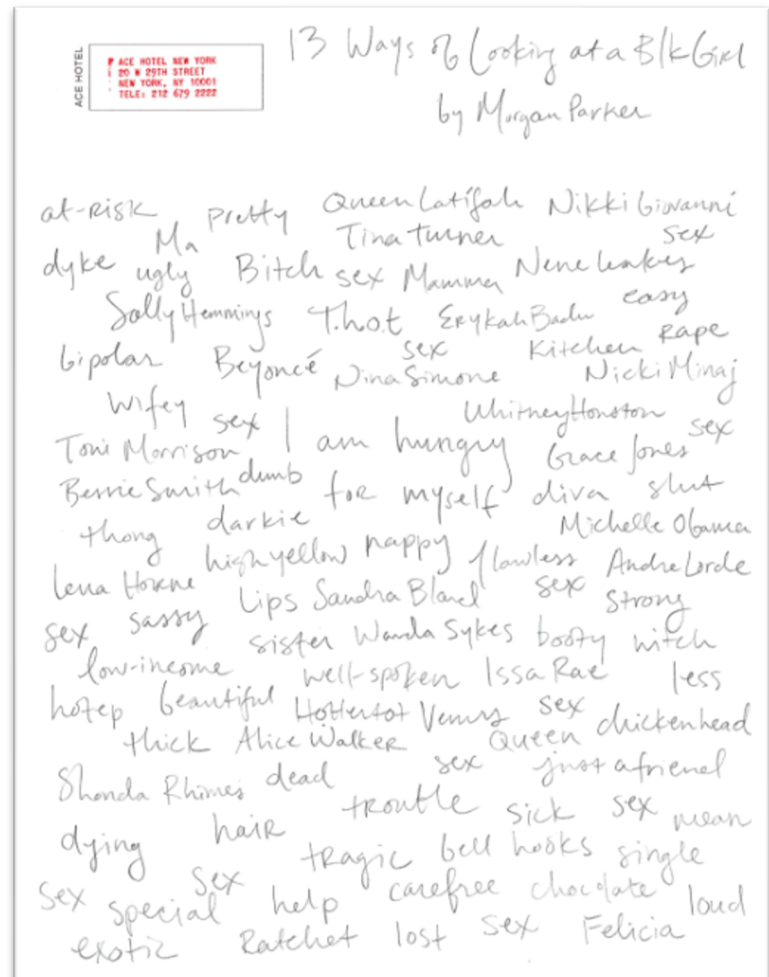 ACE HOTEL
ACE HOTEL NEW YORK
20 W 29TH STREET
NEW YORK, NY 10001
TELE: 212 679 2222
13 Ways of Looking at a Blk Girl
by Morgan Parker
at-risk pretty Queen Latifah Nikki Giovanni
Ma Tina Turner sex
dyke ugly Bitch sex Mamma Nene Leakes
Sally Hemmings T.h.o.t Erykah Badu easy
bipolar Beyoncé sex Kitchen rape
Nina Simone Nicki Minaj
Wifey sex Whitney Houston
Toni Morrison I am hungry Grace Jones sex
Bessie Smith dumb for myself diva slut
thong darkie Michelle Obama
Lena Horne high yellow nappy flawless Andre Lorde
sex sassy Lips Sandra Bland sex strong
sister Wanda Sykes booty witch
low-income well-spoken Issa Rae less
hotep beautiful Hottentot Venus sex
thick Alice Walker Queen chickenhead
Shonda Rhimes dead sex just a friend
dying hair trouble sick sex mean
tragic bell hooks single
sex special sex help carefree chocolate loud
exotic Ratchet lost sex Felicia